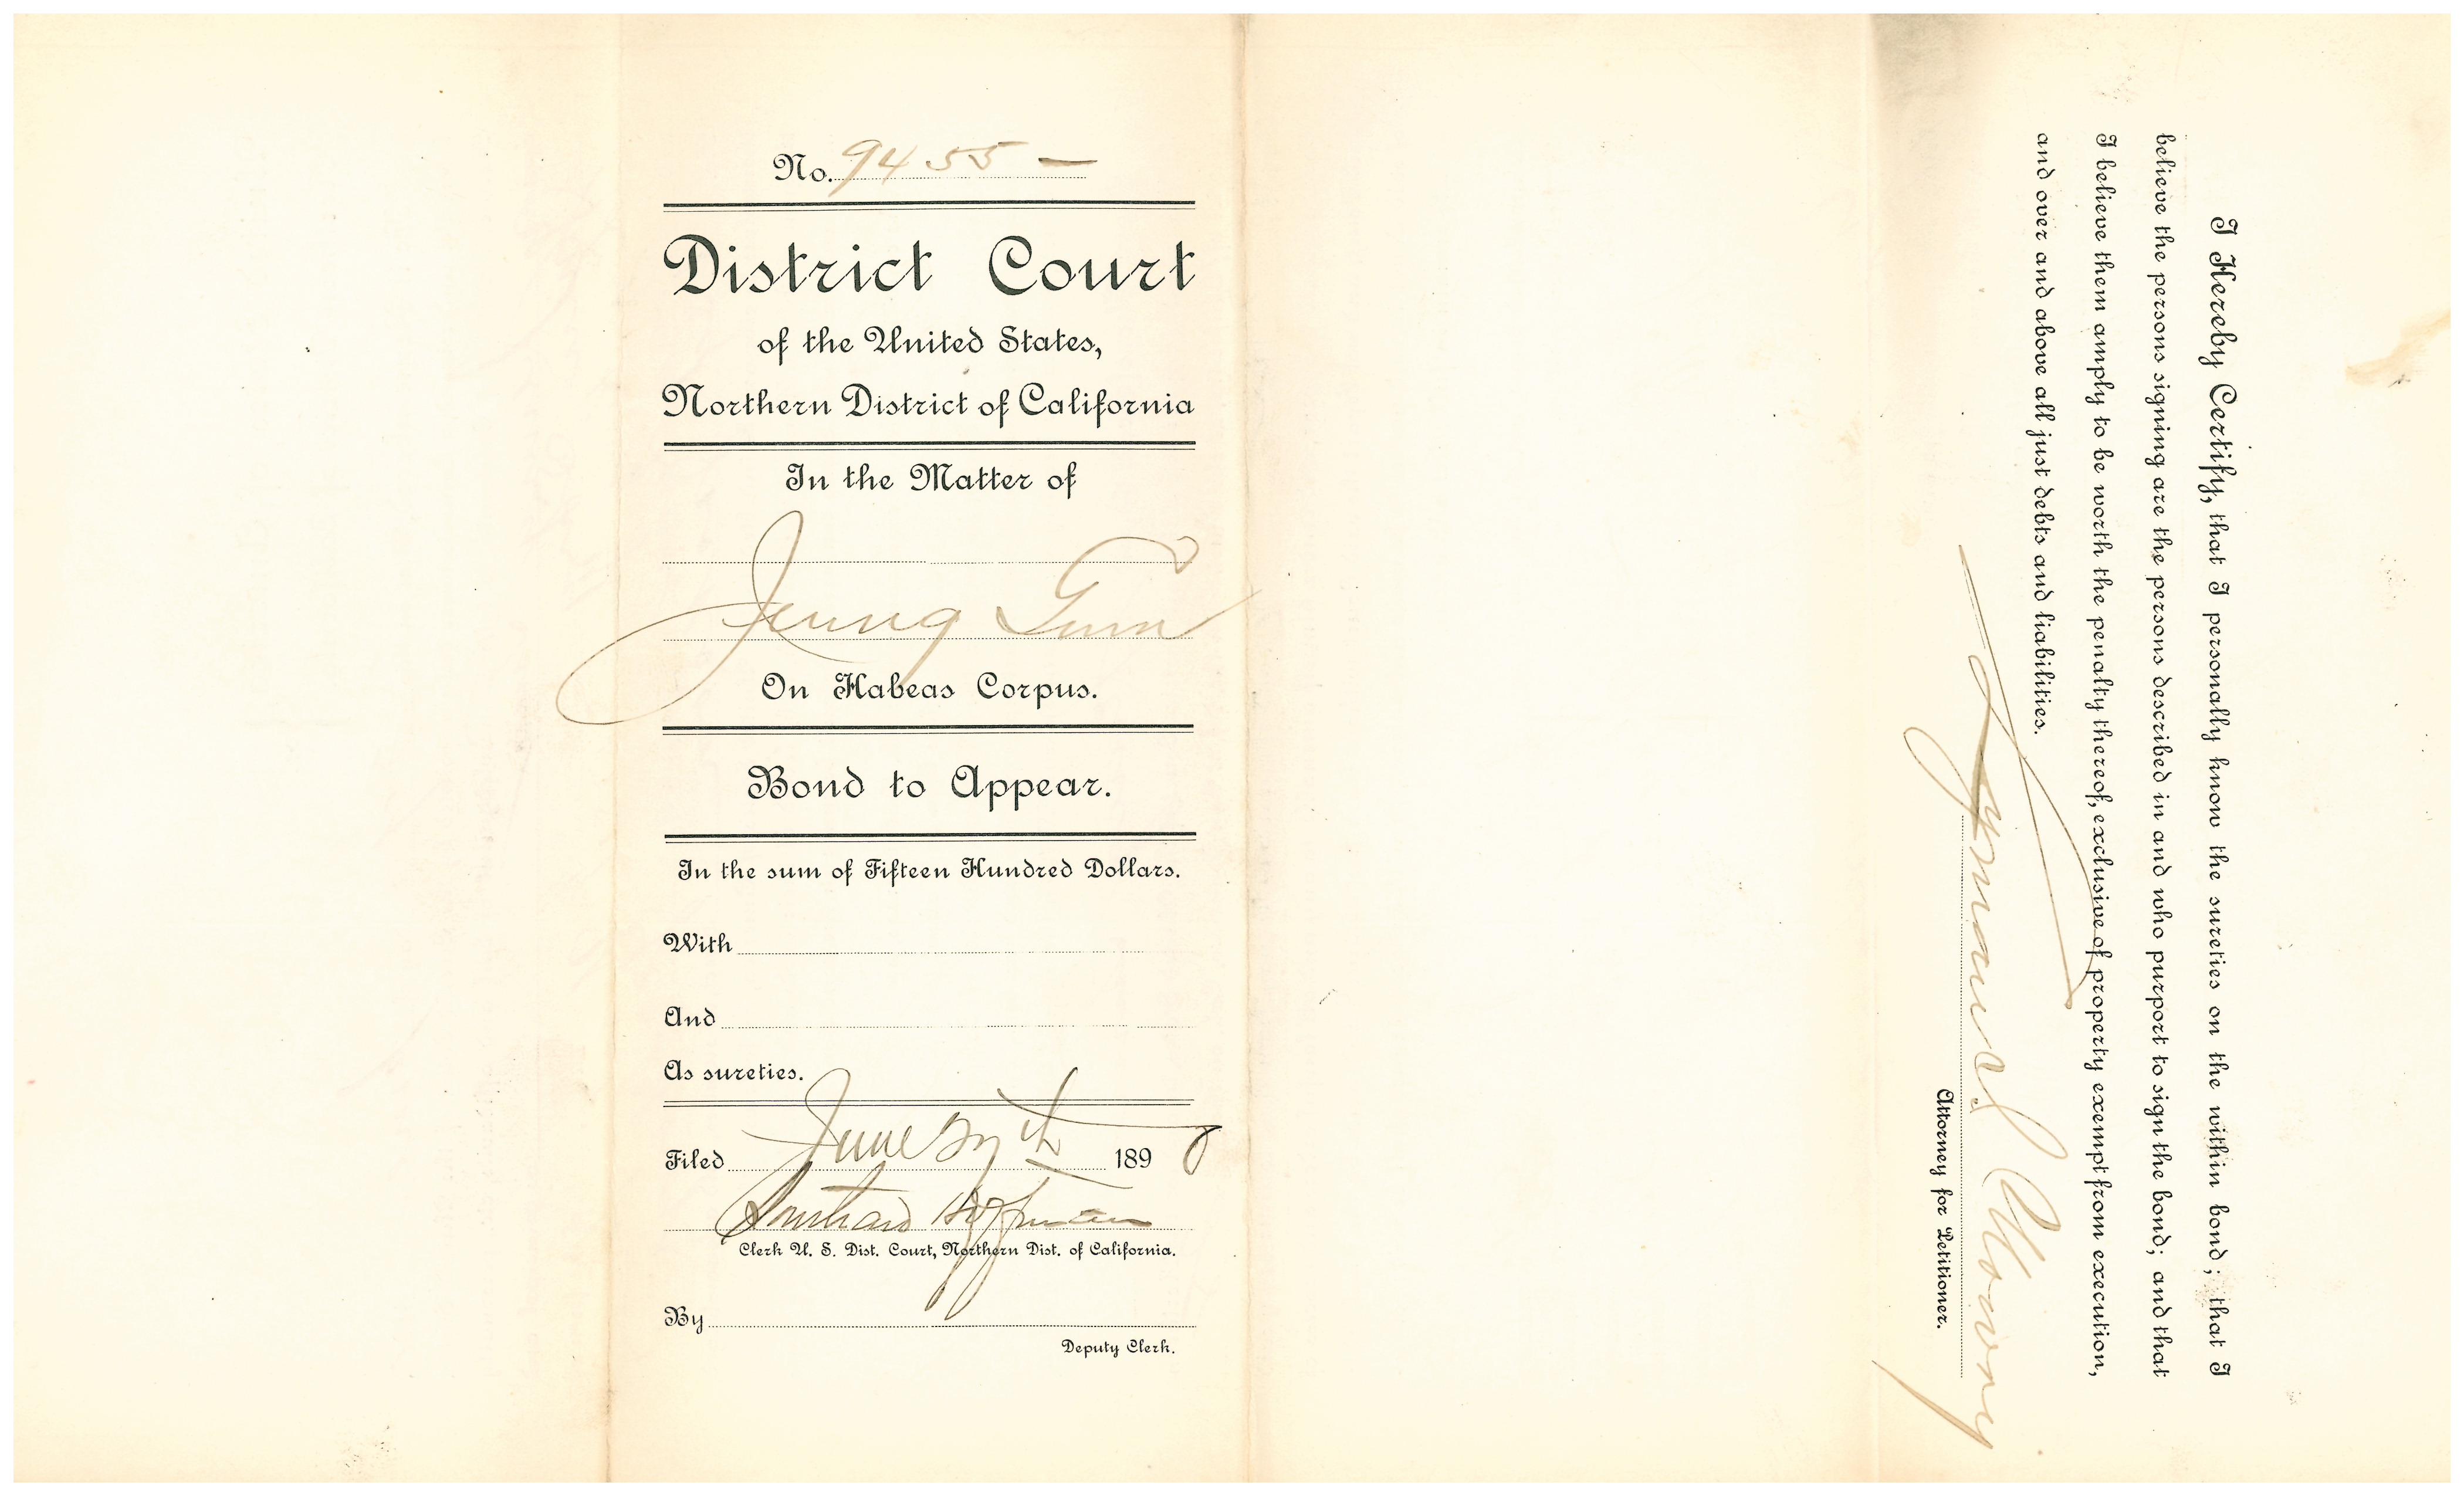 No. 9455 —
District Court
of the United States,
Northern District of California
In the Matter of
Jeung
On Habeas Corpus.
Bond to Appear.
In the sum of Fifteen Hundred Dollars.
With
And
As sureties.
Filed June 189 8
Southard Hoffman
Clerk U. S. Dist. Court, Northern Dist. of California.
By
Deputy Clerk.
I Hereby Certify, that I personally know the sureties on the within bond; that I
believe the persons signing are the persons described in and who purport to sign the bond; and that
I believe them amply to be worth the penalty thereof, exclusive of property exempt from execution,
and over and above all just debts and liabilities.
Lyman I. Mowry
Attorney for Petitioner.